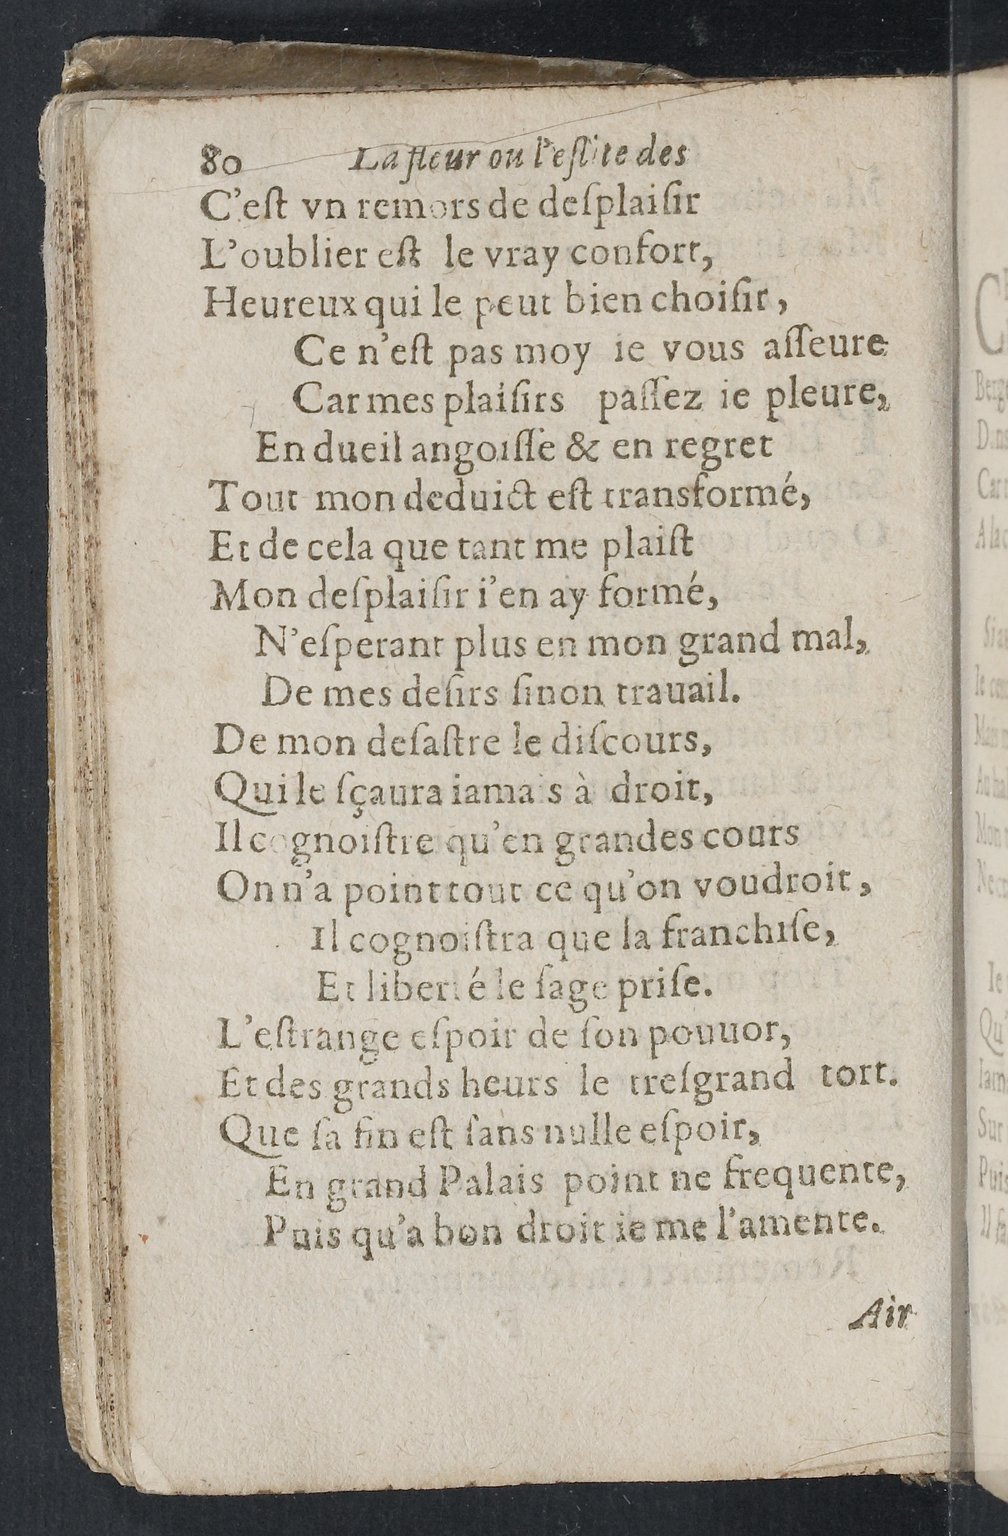 80 La fleur ou l'eslite des
C'eſt vn remors de deſplaiſir
L'oublier eſt le vray confort,
Heureux qui le peut bien choiſir,
Ce n'eſt pas moy ie vous aſſeure
Car mes plaiſirs paſſez ie pleure,
En dueil angoiſſe & en regret
Tout mon deduict eſt transformé,
Et de cela que tant me plaiſt
Mon deſplaiſir i'en ay formé,
N'eſperant plus en mon grand mal,
De mes deſirs ſinon trauail.
De mon deſaſtre le diſcours,
Qui le ſçaura iamais à droit,
Il cognoiſtre qu'en grandes cours
On n'a point tout ce qu'on voudroit,
Il cognoiſtra que la franchiſe,
Et liberté le ſage priſe.
L'eſtrange eſpoir de ſon pouuor,
Et des grands heurs le treſgrand tort.
Que ſa fin eſt ſans nulle eſpoir,
En grand Palais point ne frequente,
Puis qu'a bon droit ie me l'amente.
Air